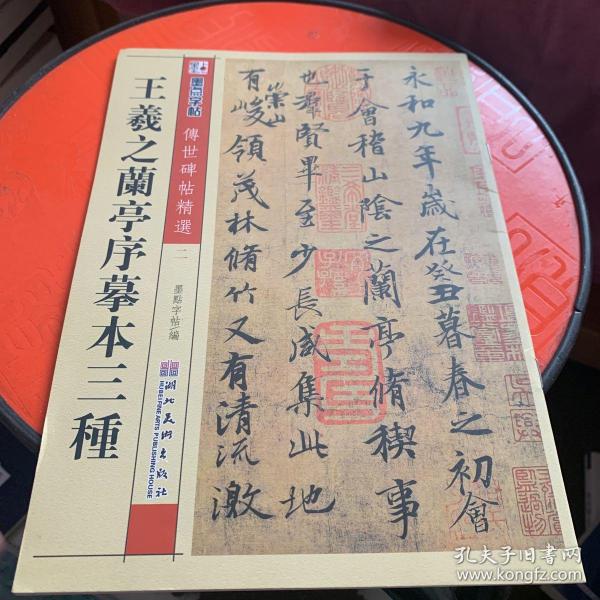 王羲之蘭亭序摹本三種
墨点字帖
傳世碑帖精選
二
墨點字帖/編
湖北美術出版社
HUBEI FINE ARTS PUBLISHING HOUSE
永和九年歲在癸丑暮春之初會
于會稽山陰之蘭亭脩稧事
也羣賢畢至少長咸集此地
有崇山峻領茂林脩竹又有清流激
孔夫子旧书网
www.kongfz.com